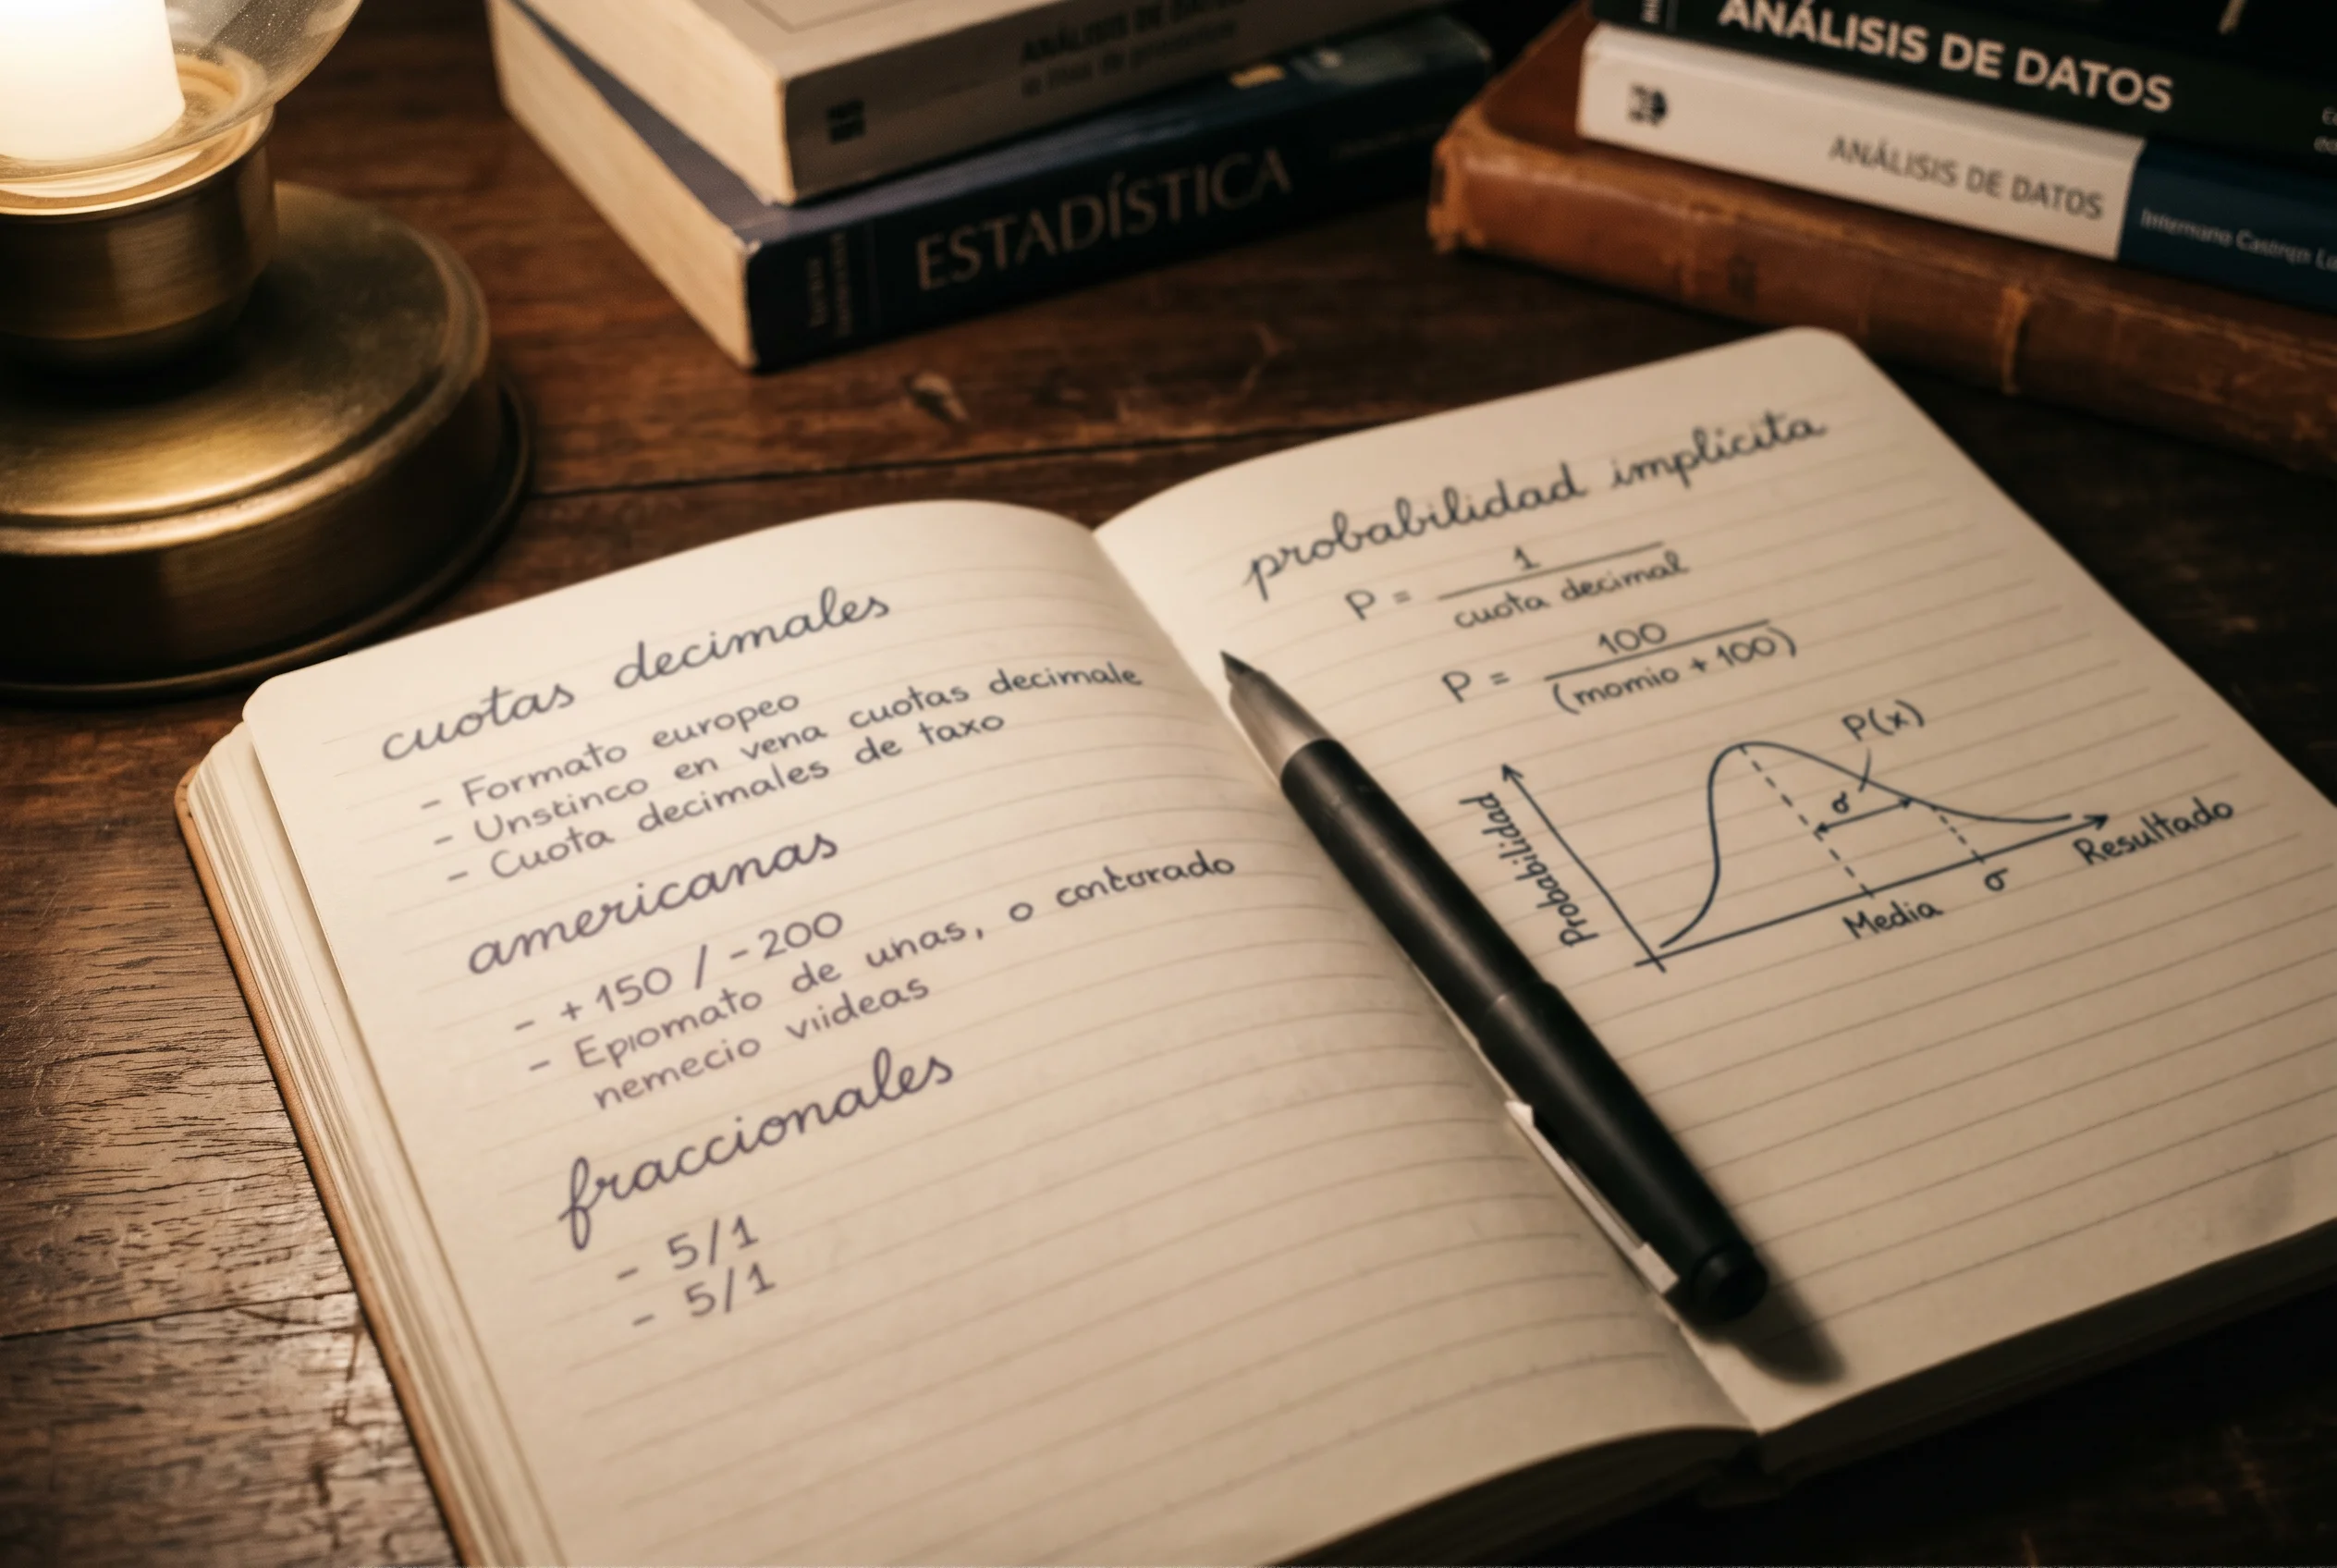 ANÁLISIS DE DATOS
ESTADÍSTICA
ANÁLISIS DE DATOS
ANÁLISIS DE DATOS
cuotas decimales
- Formato europeo
- Unstinco en vena cuotas decimale
- Cuota decimales de taxo
americanas
- +150 / -200
- Epiomato de unas, o conturado
nemecio viideas
fraccionales
- 5/1
- 5/1
probabilidad implícita
P = 1
cuota decimal
P = 100
(momio + 100)
P(x)
σ
Probabilidad
Media
σ
Resultado